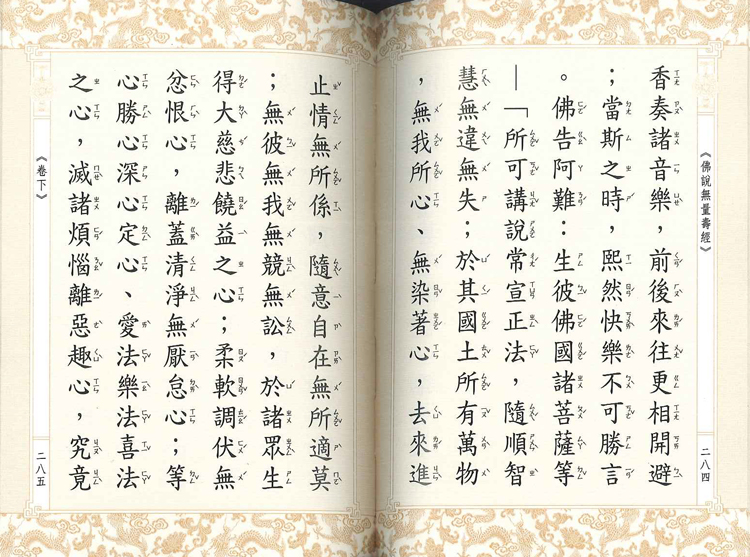 《佛說無量壽經》
二八四
香奏諸音樂,前後來往更相開避
;當斯之時,熙然快樂不可勝言
。佛告阿難:生彼佛國諸菩薩等
—「所可講說常宣正法,隨順智
慧無違無失;於其國土所有萬物
,無我所心、無染著心,去來進
止情無所係,隨意自在無所適莫
;無彼無我無競無訟,於諸眾生
得大慈悲饒益之心;柔軟調伏無
忿恨心,離蓋清淨無厭怠心;等
心勝心深心定心、愛法樂法喜法
之心,滅諸煩惱離惡趣心,究竟
《卷下》
二八五